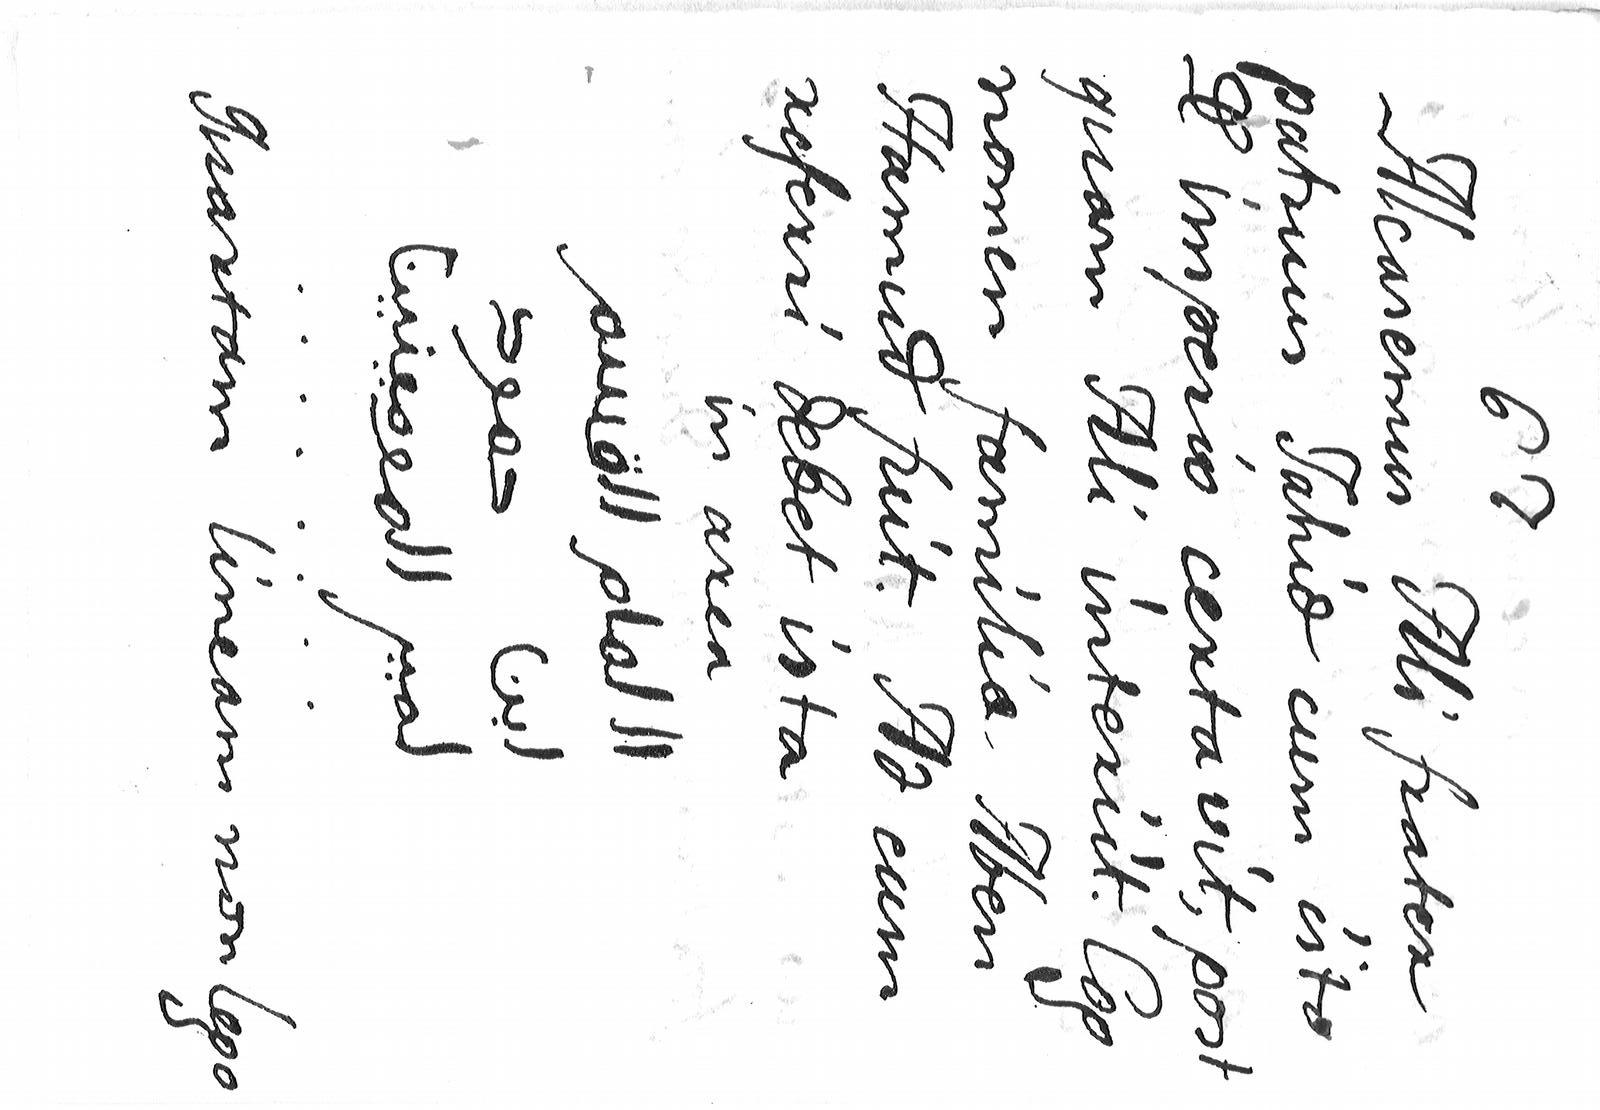 67
Alcasemus Alli frater
patruus Jahiæ cum isto
de imperio certavit, post
quam Alli interiit. Ego
nomen familia. Aben
Hamud fuit. Ad eum
referri debet ista
in area
الامام القسم
ابن حمود
امير المومنين
. . . . . . .
quartam lineam non lego